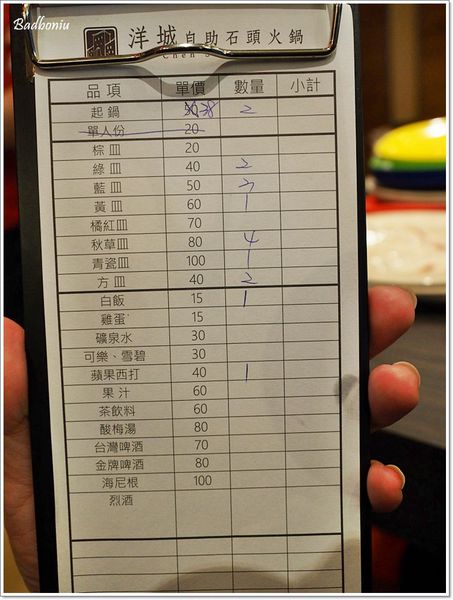 Badboniu
洋城 自助石頭火鍋
品項 單價 數量 小計
起鍋 38 2
單人份 20
棕皿 20
綠皿 40 2
藍皿 50
黃皿 60 1
橘紅皿 70
秋草皿 80 4
青瓷皿 100 1
方皿 40 2
白飯 15 1
雞蛋 15
礦泉水 30
可樂、雪碧 30
蘋果西打 40 1
果汁 60
茶飲料 60
酸梅湯 80
台灣啤酒 70
金牌啤酒 80
海尼根 100
烈酒